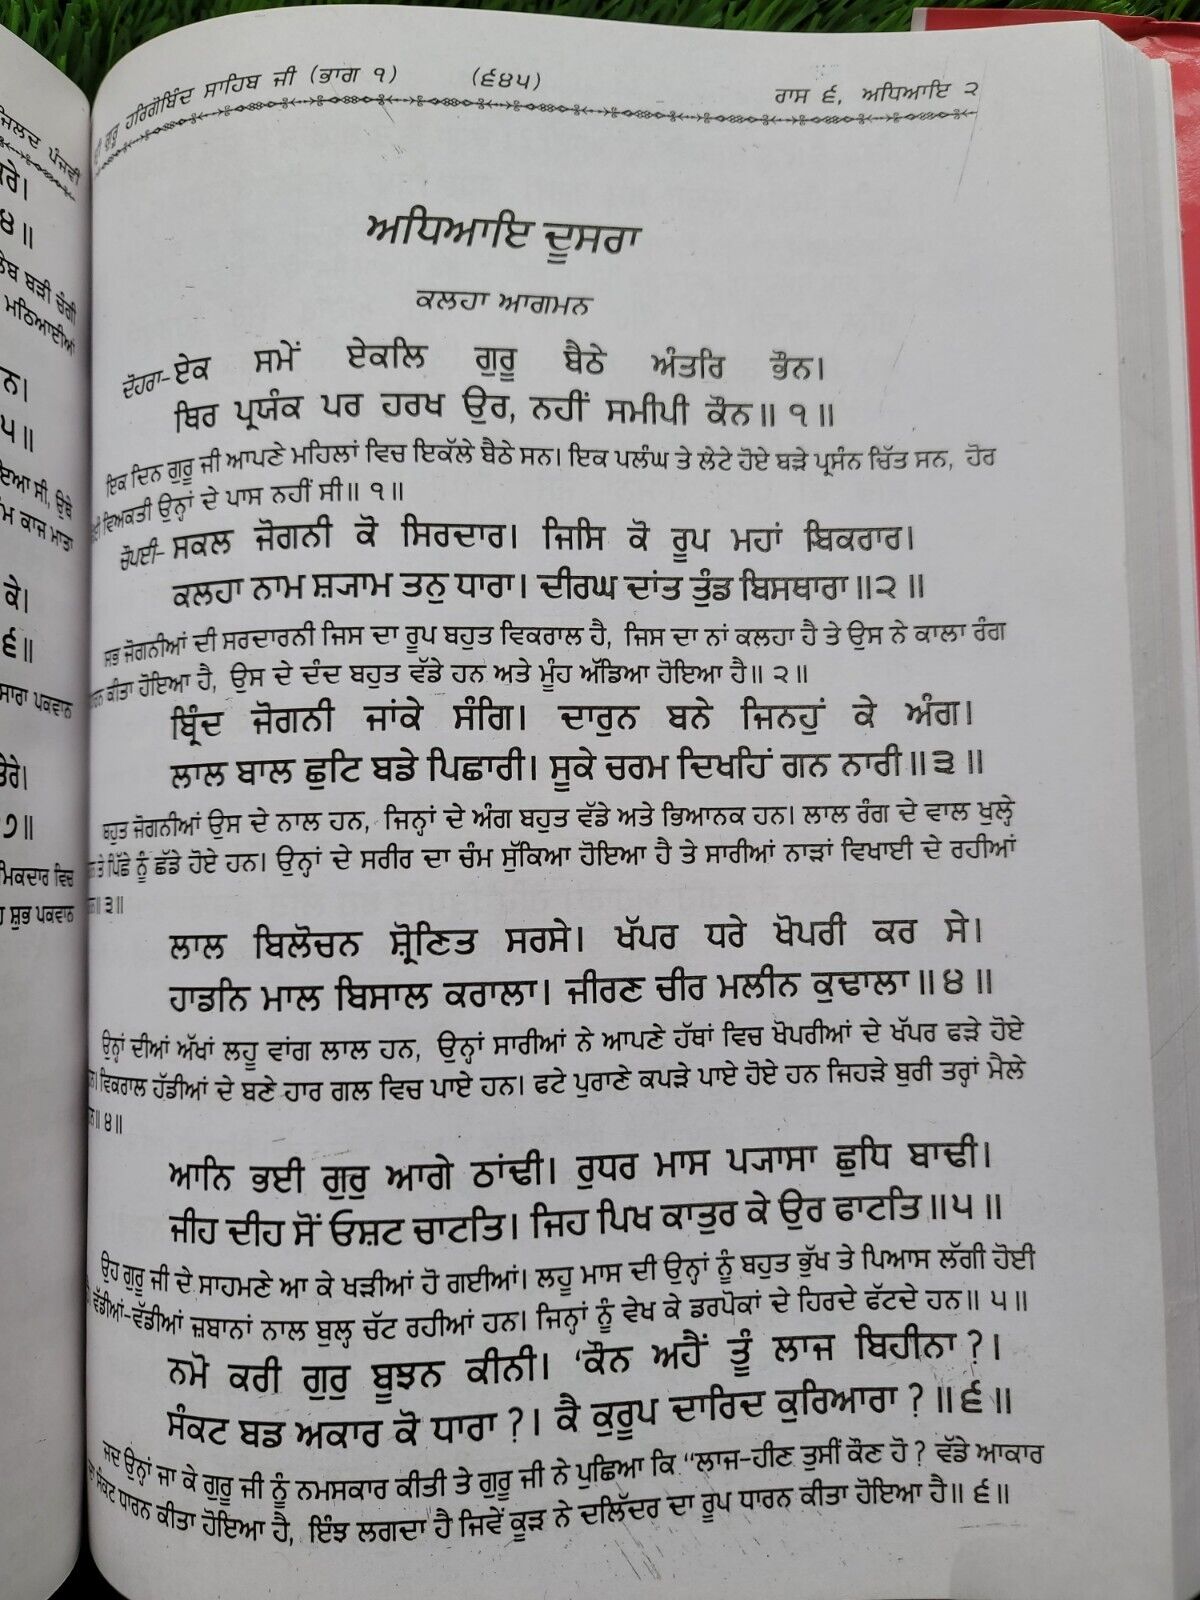 ਜਿਲਦ ਪੰਜਵੀਂ
ਕਰੇ।
੪॥
ਬੜੀ ਚੰਗੀ
ਮਠਿਆਈਆਂ
ਨ।
੫॥
ਸੀ, ਉਥੇ
ਕਾਜ ਮਾਤਾ
ਕੇ।
੬॥
ਸਾਰਾ ਪਕਵਾਨ
ਤੇਰੇ।
੭॥
ਮਿਕਦਾਰ ਵਿਚ
ਸ਼ੁਭ ਪਕਵਾਨ
ਗੁਰੂ ਹਰਿਗੋਬਿੰਦ ਸਾਹਿਬ ਜੀ (ਭਾਗ ੧) (੬੪੫) ਰਾਸ ੬, ਅਧਿਆਇ ੨
ਅਧਿਆਇ ਦੂਸਰਾ
ਕਲਹਾ ਆਗਮਨ
ਦੋਹਰਾ- ਏਕ ਸਮੇਂ ਏਕਲਿ ਗੁਰੂ ਬੈਠੇ ਅੰਤਰਿ ਭੌਨ।
ਥਿਰ ਪ੍ਰਯੰਕ ਪਰ ਹਰਖ ਉਰ, ਨਹੀਂ ਸਮੀਪੀ ਕੌਨ॥੧॥
ਇਕ ਦਿਨ ਗੁਰੂ ਜੀ ਆਪਣੇ ਮਹਿਲਾਂ ਵਿਚ ਇਕੱਲੇ ਬੈਠੇ ਸਨ। ਇਕ ਪਲੰਘ ਤੇ ਲੇਟੇ ਹੋਏ ਬੜੇ ਪ੍ਰਸੰਨ ਚਿੱਤ ਸਨ, ਹੋਰ
ਵਿਅਕਤੀ ਉਨ੍ਹਾਂ ਦੇ ਪਾਸ ਨਹੀਂ ਸੀ॥੧॥
ਚੌਪਈ- ਸਕਲ ਜੋਗਨੀ ਕੋ ਸਿਰਦਾਰ। ਜਿਸਿ ਕੋ ਰੂਪ ਮਹਾਂ ਬਿਕਰਾਰ।
ਕਲਹਾ ਨਾਮ ਸ਼੍ਯਾਮ ਤਨੁ ਧਾਰਾ। ਦੀਰਘ ਦਾਂਤ ਤੁੰਡ ਬਿਸਥਾਰਾ॥੨॥
ਸਭ ਜੋਗਨੀਆਂ ਦੀ ਸਰਦਾਰਨੀ ਜਿਸ ਦਾ ਰੂਪ ਬਹੁਤ ਵਿਕਰਾਲ ਹੈ, ਜਿਸ ਦਾ ਨਾਂ ਕਲਹਾ ਹੈ ਤੇ ਉਸ ਨੇ ਕਾਲਾ ਰੰਗ
ਕੀਤਾ ਹੋਇਆ ਹੈ, ਉਸ ਦੇ ਦੰਦ ਬਹੁਤ ਵੱਡੇ ਹਨ ਅਤੇ ਮੂੰਹ ਅੱਡਿਆ ਹੋਇਆ ਹੈ॥੨॥
ਬ੍ਰਿੰਦ ਜੋਗਨੀ ਜਾਂਕੇ ਸੰਗਿ। ਦਾਰੁਨ ਬਨੇ ਜਿਨਹੁਂ ਕੇ ਅੰਗ।
ਲਾਲ ਬਾਲ ਛੁਟਿ ਬਡੇ ਪਿਛਾਰੀ। ਸੂਕੇ ਚਰਮ ਦਿਖਹਿਂ ਗਨ ਨਾਰੀ॥੩॥
ਬਹੁਤ ਜੋਗਨੀਆਂ ਉਸ ਦੇ ਨਾਲ ਹਨ, ਜਿਨ੍ਹਾਂ ਦੇ ਅੰਗ ਬਹੁਤ ਵੱਡੇ ਅਤੇ ਭਿਆਨਕ ਹਨ। ਲਾਲ ਰੰਗ ਦੇ ਵਾਲ ਖੁਲ੍ਹੇ
ਤੇ ਪਿੱਛੇ ਨੂੰ ਛੱਡੇ ਹੋਏ ਹਨ। ਉਨ੍ਹਾਂ ਦੇ ਸਰੀਰ ਦਾ ਚੰਮ ਸੁੱਕਿਆ ਹੋਇਆ ਹੈ ਤੇ ਸਾਰੀਆਂ ਨਾੜਾਂ ਵਿਖਾਈ ਦੇ ਰਹੀਆਂ
॥੩॥
ਲਾਲ ਬਿਲੋਚਨ ਸ਼੍ਰੋਣਿਤ ਸਰਸੇ। ਖੱਪਰ ਧਰੇ ਖੋਪਰੀ ਕਰ ਸੇ।
ਹਾਡਨਿ ਮਾਲ ਬਿਸਾਲ ਕਰਾਲਾ। ਜੀਰਣ ਚੀਰ ਮਲੀਨ ਕੁਢਾਲਾ॥੪॥
ਉਨ੍ਹਾਂ ਦੀਆਂ ਅੱਖਾਂ ਲਹੂ ਵਾਂਗ ਲਾਲ ਹਨ, ਉਨ੍ਹਾਂ ਸਾਰੀਆਂ ਨੇ ਆਪਣੇ ਹੱਥਾਂ ਵਿਚ ਖੋਪਰੀਆਂ ਦੇ ਖੱਪਰ ਫੜੇ ਹੋਏ
ਵਿਕਰਾਲ ਹੱਡੀਆਂ ਦੇ ਬਣੇ ਹਾਰ ਗਲ ਵਿਚ ਪਾਏ ਹਨ। ਫਟੇ ਪੁਰਾਣੇ ਕਪੜੇ ਪਾਏ ਹੋਏ ਹਨ ਜਿਹੜੇ ਬੁਰੀ ਤਰ੍ਹਾਂ ਮੈਲੇ
॥੪॥
ਆਨਿ ਭਈ ਗੁਰੁ ਆਗੇ ਠਾਂਢੀ। ਰੁਧਰ ਮਾਸ ਪ੍ਯਾਸਾ ਛੁਧਿ ਬਾਢੀ।
ਜੀਹ ਦੀਹ ਸੋਂ ਓਸ਼ਟ ਚਾਟਤਿ। ਜਿਹ ਪਿਖ ਕਾਤੁਰ ਕੇ ਉਰ ਫਾਟਤਿ॥੫॥
ਉਹ ਗੁਰੂ ਜੀ ਦੇ ਸਾਹਮਣੇ ਆ ਕੇ ਖੜੀਆਂ ਹੋ ਗਈਆਂ। ਲਹੂ ਮਾਸ ਦੀ ਉਨ੍ਹਾਂ ਨੂੰ ਬਹੁਤ ਭੁੱਖ ਤੇ ਪਿਆਸ ਲੱਗੀ ਹੋਈ
ਵੱਡੀਆਂ-ਵੱਡੀਆਂ ਜ਼ਬਾਨਾਂ ਨਾਲ ਬੁਲ੍ਹ ਚੱਟ ਰਹੀਆਂ ਹਨ। ਜਿਨ੍ਹਾਂ ਨੂੰ ਵੇਖ ਕੇ ਡਰਪੋਕਾਂ ਦੇ ਹਿਰਦੇ ਫੱਟਦੇ ਹਨ॥੫॥
ਨਮੋ ਕਰੀ ਗੁਰੁ ਬੂਝਨ ਕੀਨੀ। ‘ਕੌਨ ਅਹੈਂ ਤੂੰ ਲਾਜ ਬਿਹੀਨਾ?।
ਸੰਕਟ ਬਡ ਅਕਾਰ ਕੋ ਧਾਰਾ?। ਕੈ ਕੁਰੂਪ ਦਾਰਿਦ ਕੁਰਿਆਰਾ?॥੬॥
ਜਦ ਉਨ੍ਹਾਂ ਜਾ ਕੇ ਗੁਰੂ ਜੀ ਨੂੰ ਨਮਸਕਾਰ ਕੀਤੀ ਤੇ ਗੁਰੂ ਜੀ ਨੇ ਪੁਛਿਆ ਕਿ “ਲਾਜ-ਹੀਣ ਤੁਸੀਂ ਕੌਣ ਹੋ? ਵੱਡੇ ਆਕਾਰ
ਸੰਕਟ ਧਾਰਨ ਕੀਤਾ ਹੋਇਆ ਹੈ, ਇੰਝ ਲਗਦਾ ਹੈ ਜਿਵੇਂ ਕੂੜ ਨੇ ਦਲਿੱਦਰ ਦਾ ਰੂਪ ਧਾਰਨ ਕੀਤਾ ਹੋਇਆ ਹੈ॥੬॥